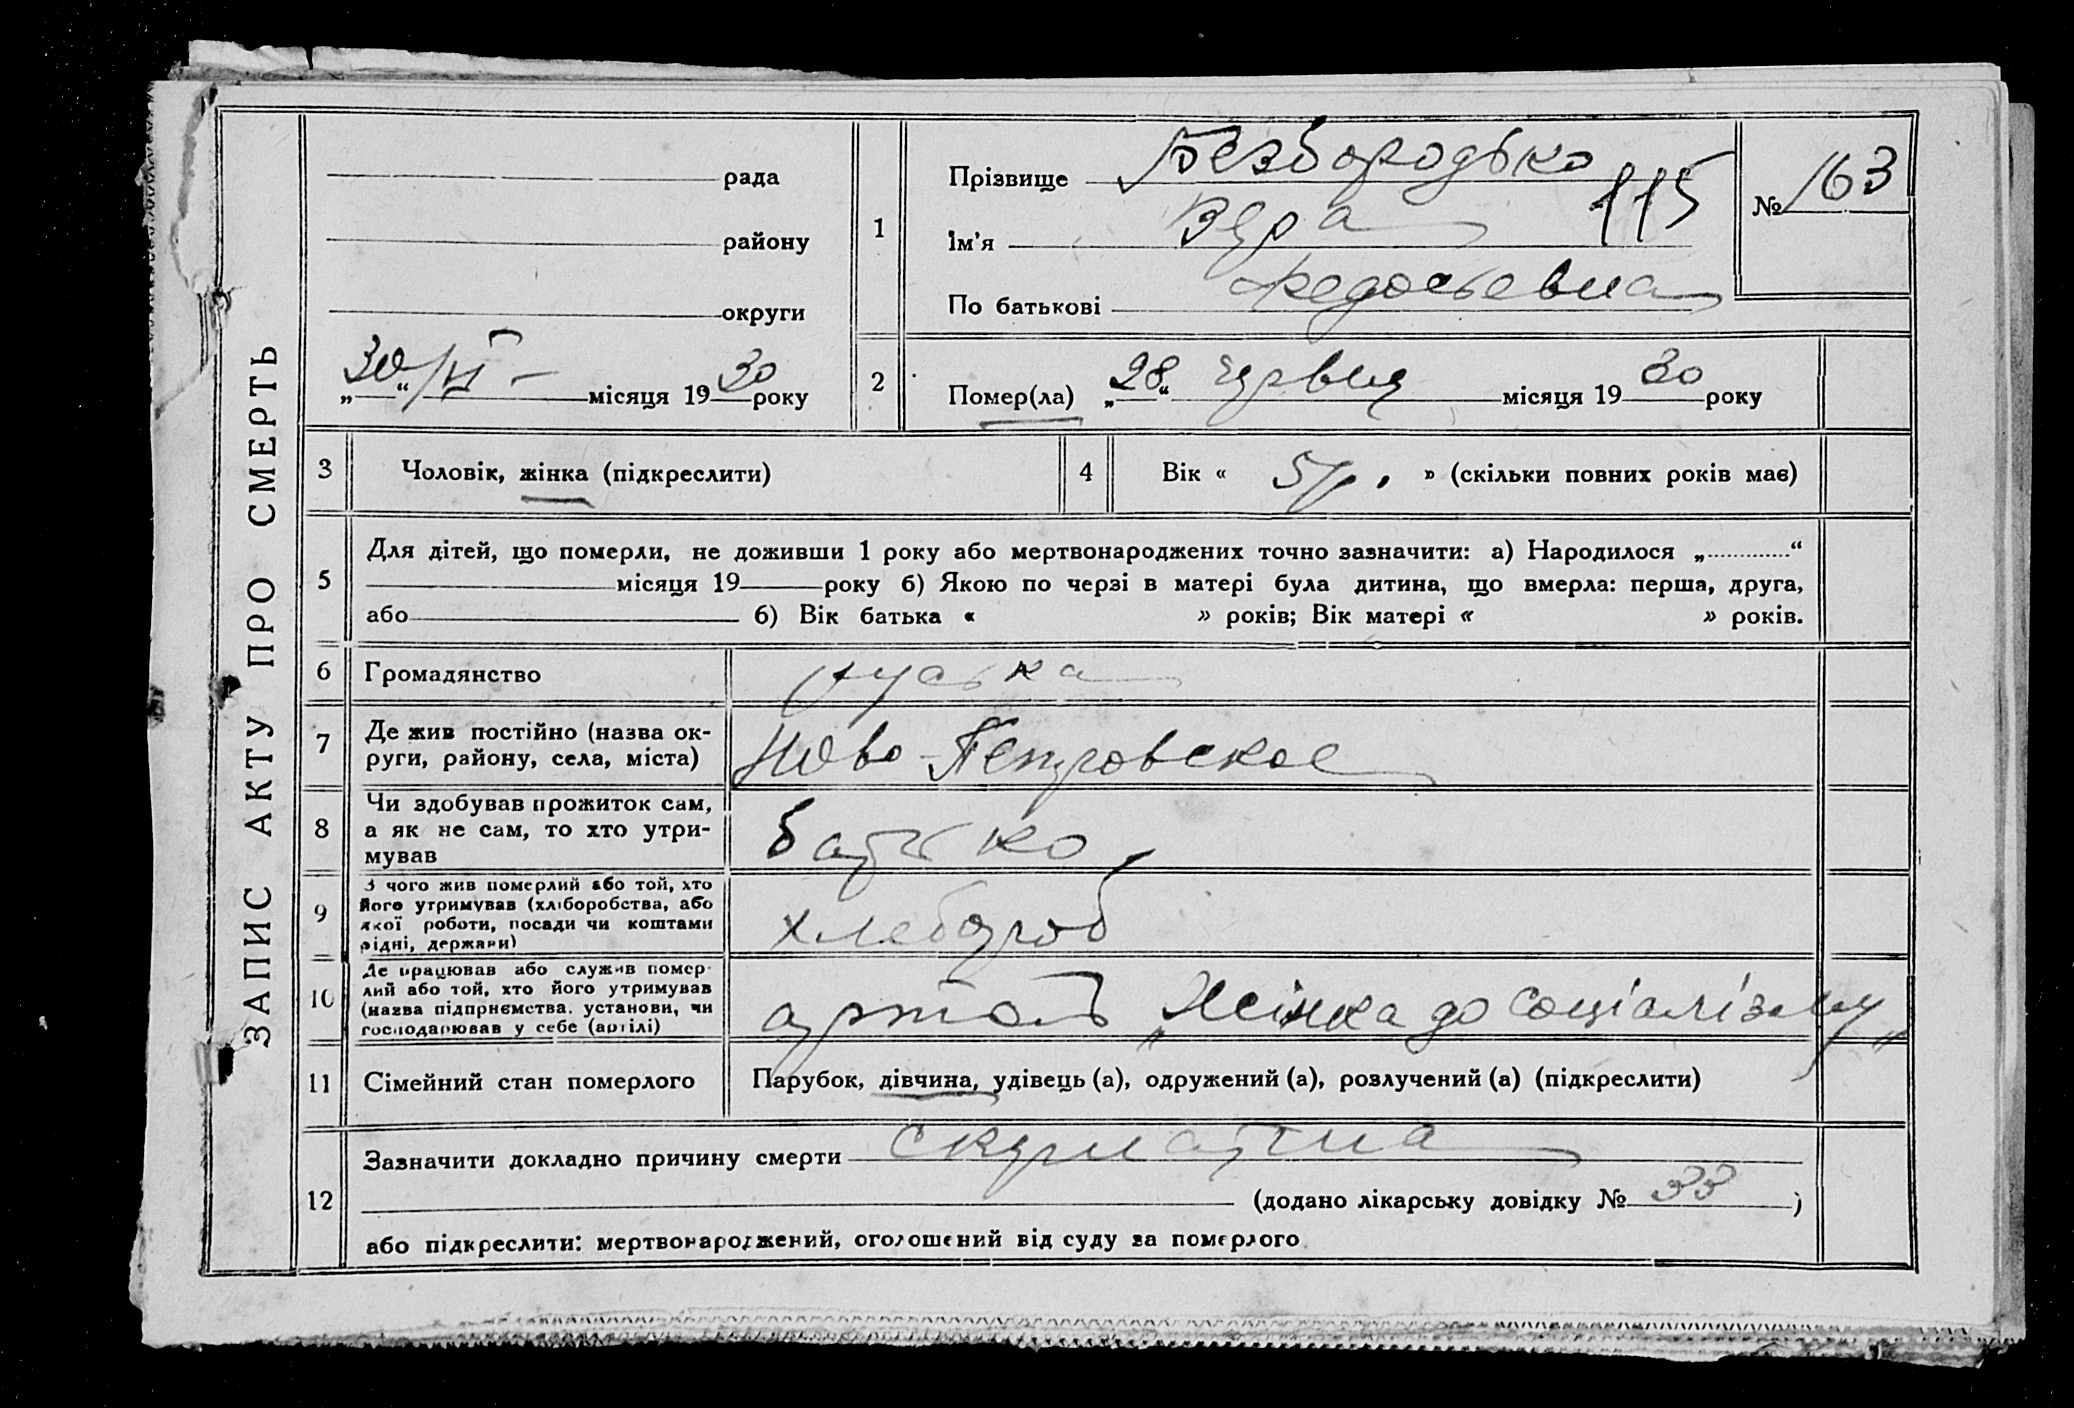 ЗАПИС АКТУ ПРО СМЕРТЬ
рада
району
округи
„30“ VI – місяця 1930 року
1
Прізвище Безбородько
Ім'я Вера 115
По батькові Федосьевна
№ 163
2
Помер(ла) „28“ червня місяця 1930 року
3 Чоловік, жінка (підкреслити)
4 Вік « 5 р. » (скільки повних років має)
5
Для дітей, що померли, не доживши 1 року або мертвонароджених точно зазначити: а) Народилося „.............“
місяця 19 року б) Якою по черзі в матері була дитина, що вмерла: перша, друга,
або б) Вік батька « » років; Вік матері « » років.
6 Громадянство руська
7 Де жив постійно (назва ок-
руги, району, села, міста)
Ново-Петровское
8 Чи здобував прожиток сам,
а як не сам, то хто утри-
мував
батько
9 З чого жив померлий або той, хто
його утримував (хліборобства, або
якої роботи, посади чи коштами
рідні, держави)
хлебороб
10 Де працював або служив помер-
лий або той, хто його утримував
(назва підпрнємства, установи, чи
господарював у себе (артілі)
артель „Жінка до соціалізму„
11 Сімейний стан померлого
Парубок, дівчина, удівець (а), одружений (а), розлучений (а) (підкреслити)
12
Зазначити докладно причину смерти
(додано лікарську довідку № 33 )
або підкреслити: мертвонароджений, оголошений від суду за померлого